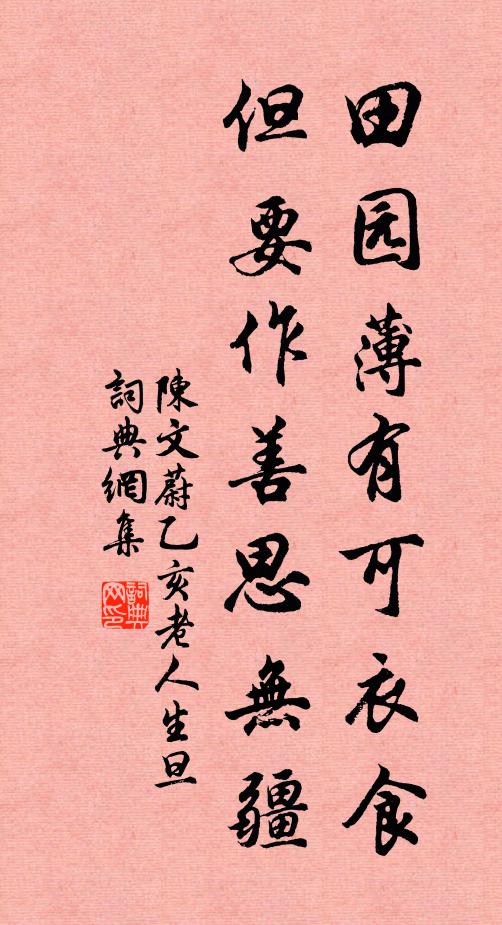 田园薄有可衣食
但要作善思無疆
陳文蔚乙亥老人生旦
詞典網集
詞典网印